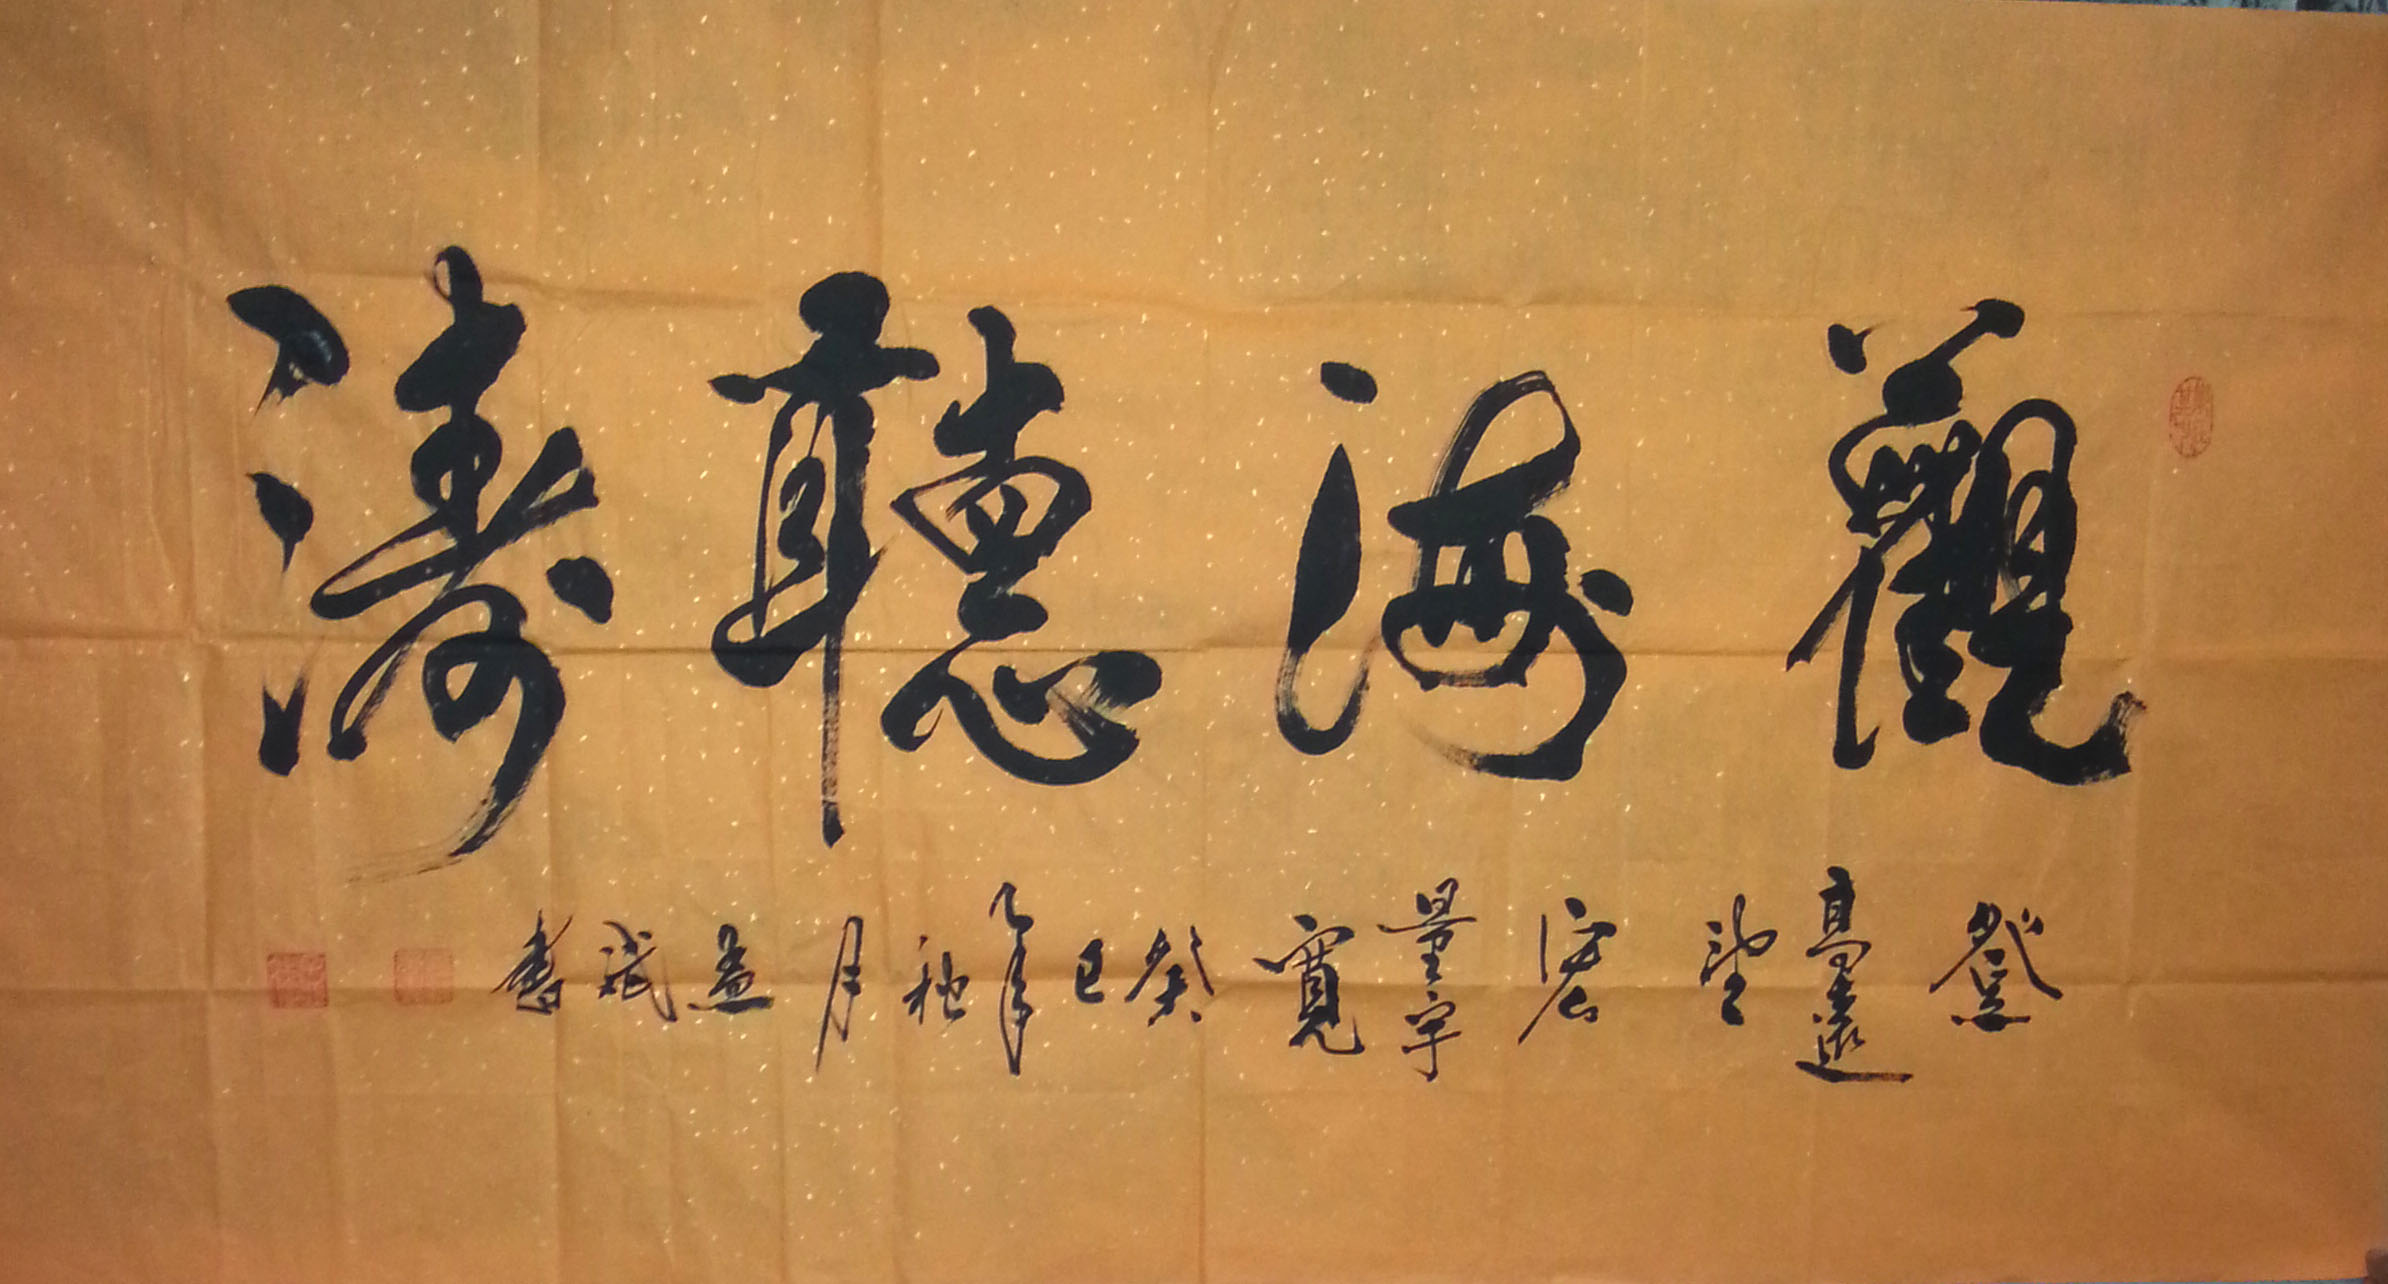 觀海聽濤
登高遠望宏量宇寬癸巳年秋月益斌書